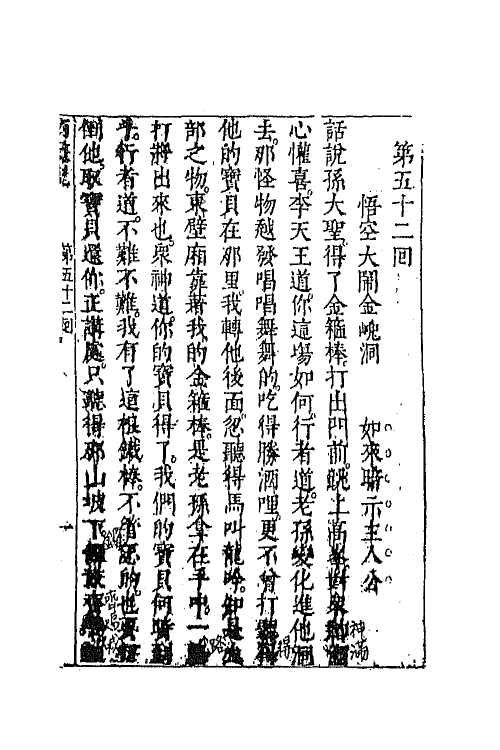 第五十二回
悟空大鬧金𡼏洞　如來暗示主人公
話說孫大聖得了金箍棒打出門前跳上高峯對衆神滿
心懽喜李天王道你這場如何行者道老孫變化進他洞
去那怪物越發唱唱舞舞的吃得勝酒哩更不曾打聽得
他的寶貝在那里我轉他後面忽聽得馬叫龍吟
部之物東壁廂靠著我的金箍棒是老孫拿在手中一路
打將出來也衆神道你的寶貝得了我們的寶貝何時
手行者道不難不難我有了這根鐵棒不管怎的也要
倒他取寶貝還你正講處只聽得那山坡下鑼鼓齊
第五十二回